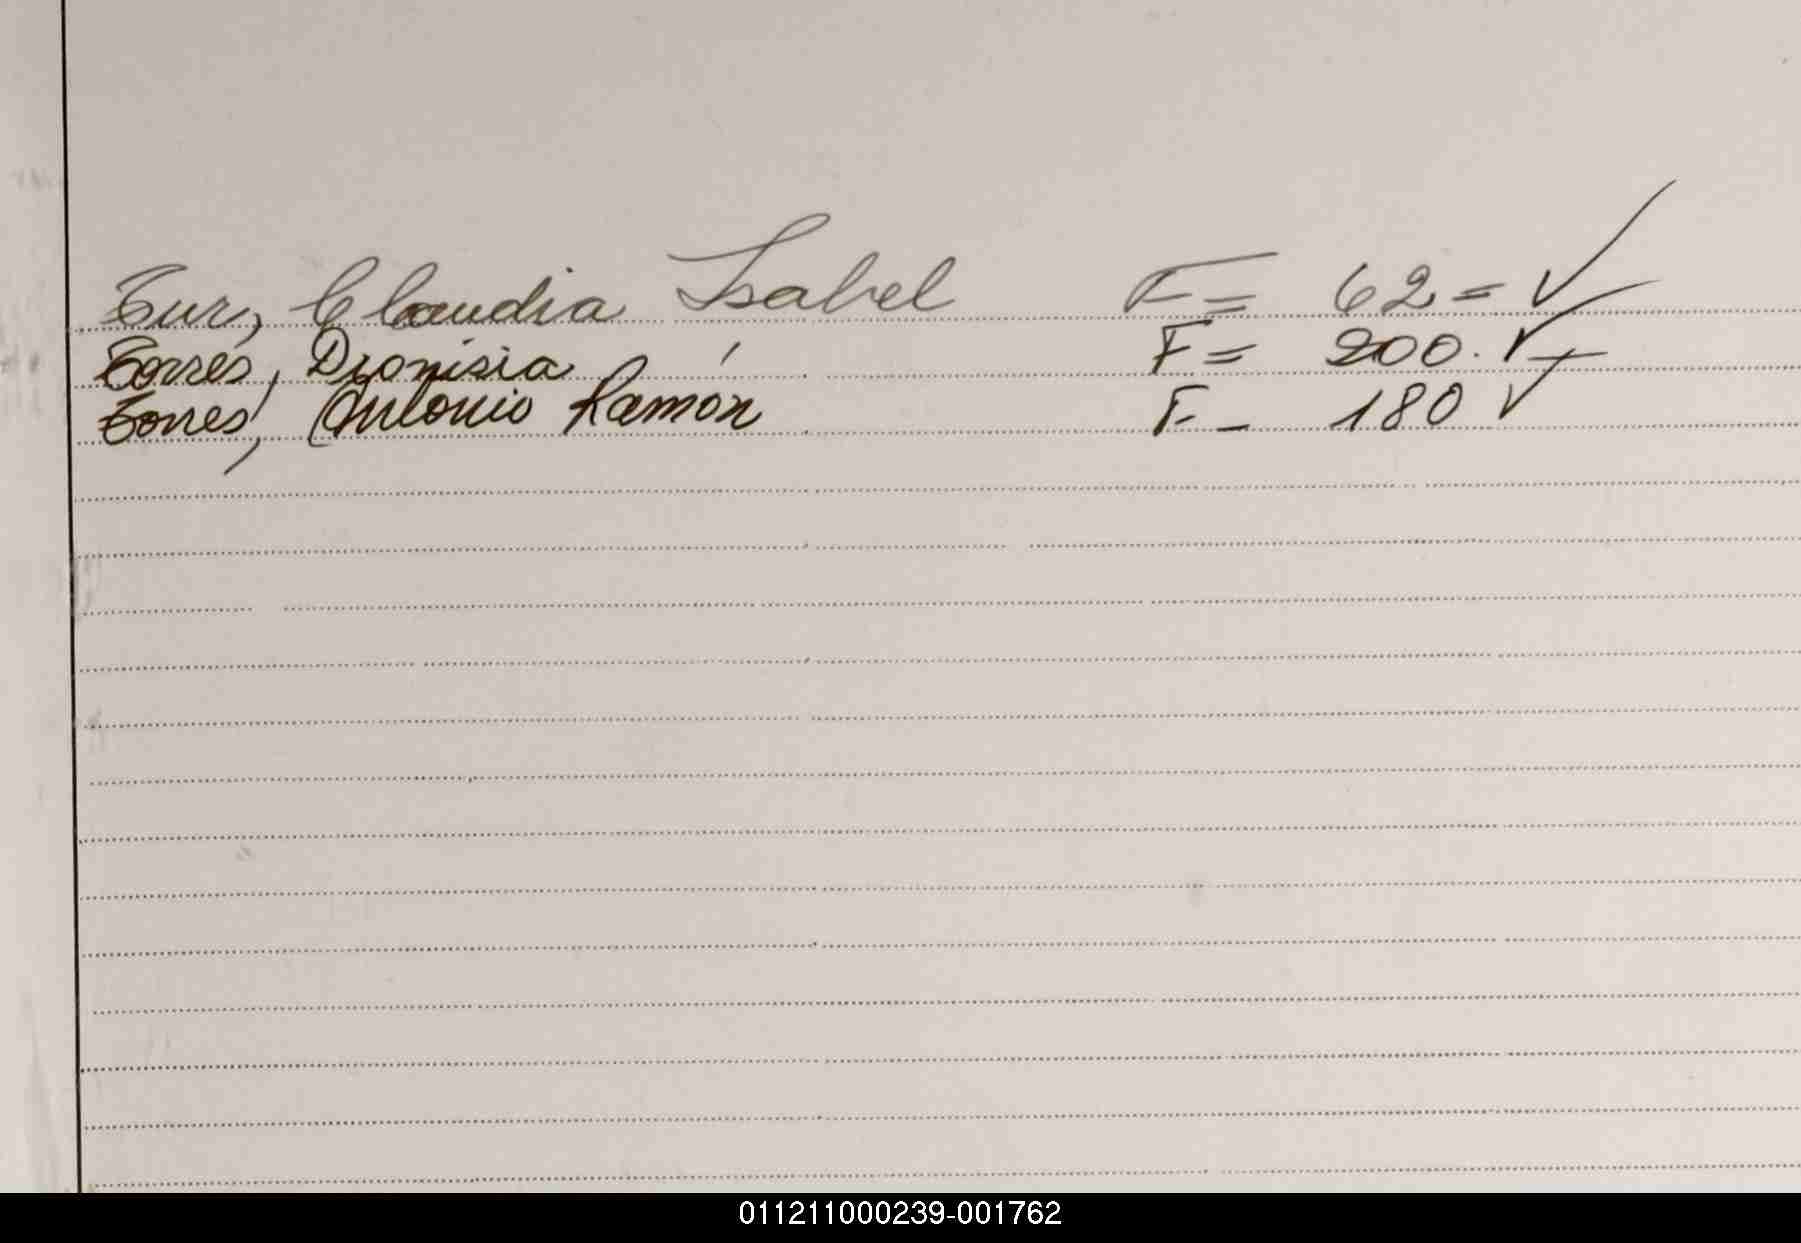 Tur, Claudia Isabel F= 62= ✓
Torres, Dionisia F= 200. ✓
Torres, Antonio Ramón F- 180 ✓
011211000239-001762